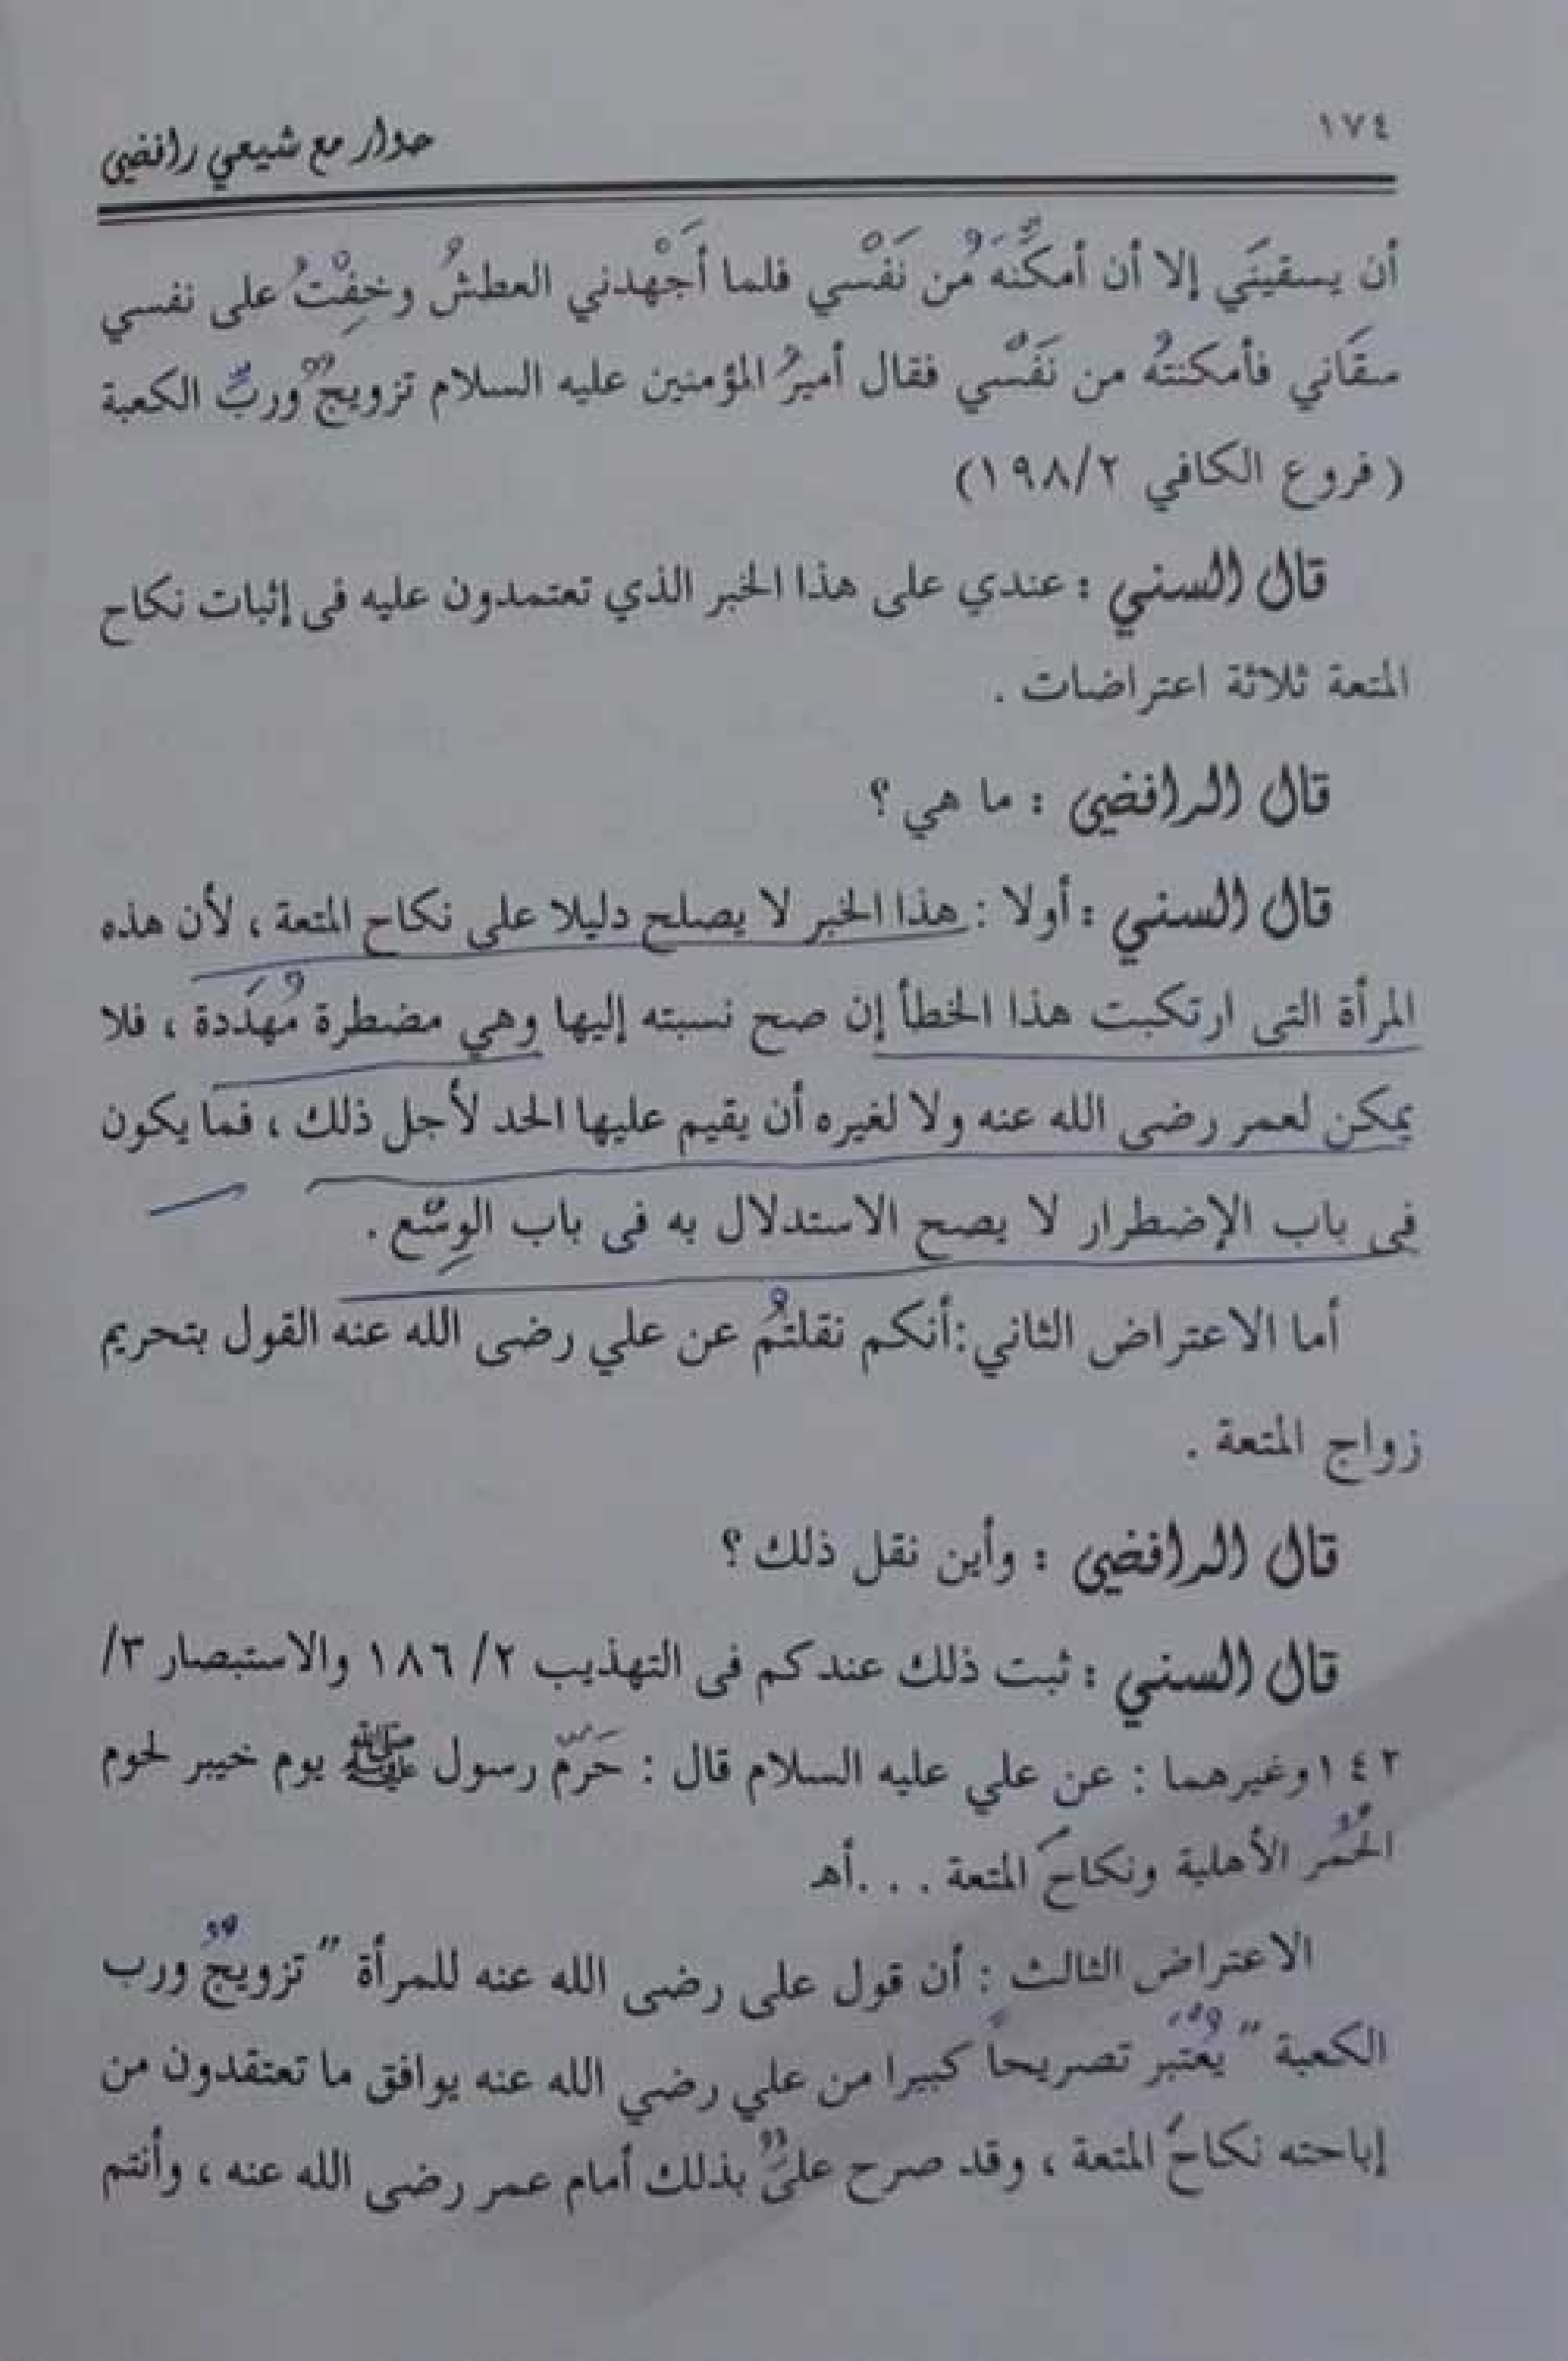 ١٧٤
حوار مع شيعي رافضي
أن يسقينَي إلا أن أمكِّنَهُ مُن نَفْسي فلما أَجْهدني العطشُ وخِفْتُ على نفسي
سقَاني فأمكنتهُ من نَفْسي فقال أميرُ المؤمنين عليه السلام تزويجٌ وربِّ الكعبة
(فروع الكافي ١٩٨/٢)
قال السني : عندي على هذا الخبر الذي تعتمدون عليه فى إثبات نكاح
المتعة ثلاثة اعتراضات .
قال الرافضي : ما هي ؟
قال السني : أولا : هذا الخبر لا يصلح دليلا على نكاح المتعة ، لأن هذه
المرأة التى ارتكبت هذا الخطأ إن صح نسبته إليها وهي مضطرة مُهَددة ، فلا
يمكن لعمر رضى الله عنه ولا لغيره أن يقيم عليها الحد لأجل ذلك ، فما يكون
فى باب الإضطرار لا يصح الاستدلال به فى باب الوِسْع .
أما الاعتراض الثاني:أنكم نقلتمُ عن علي رضى الله عنه القول بتحريم
زواج المتعة .
قال الرافضي : وأين نقل ذلك ؟
قال السني : ثبت ذلك عندكم فى التهذيب ٢/ ١٨٦ والاستبصار ٣/
١٤٢وغيرهما : عن علي عليه السلام قال : حَرَّم رسول ﷺ يوم خيبر لحوم
الحُمُر الأهلية ونكاحَ المتعة . . .أهـ
الاعتراض الثالث : أن قول على رضى الله عنه للمرأة " تزويجٌ ورب
الكعبة " يُعْتَبر تصريحاً كبيرا من علي رضي الله عنه يوافق ما تعتقدون من
إباحته نكاحَ المتعة ، وقد صرح علىٌ بذلك أمام عمر رضى الله عنه ، وأنتم